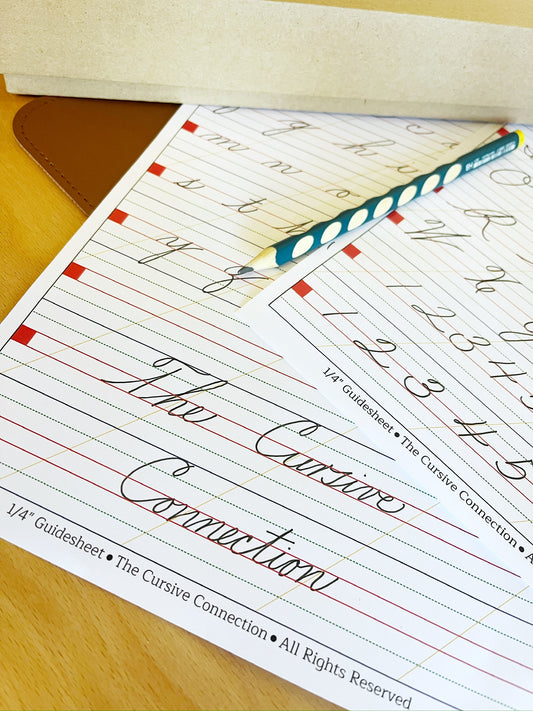 m n o
s t
y z
The Cursive
Connection
1/4" Guidesheet • The Cursive Connection • All Rights Reserved
R
W X
1 2 3 4
1 2 3 4 5
1/4" Guidesheet • The Cursive Connection • A